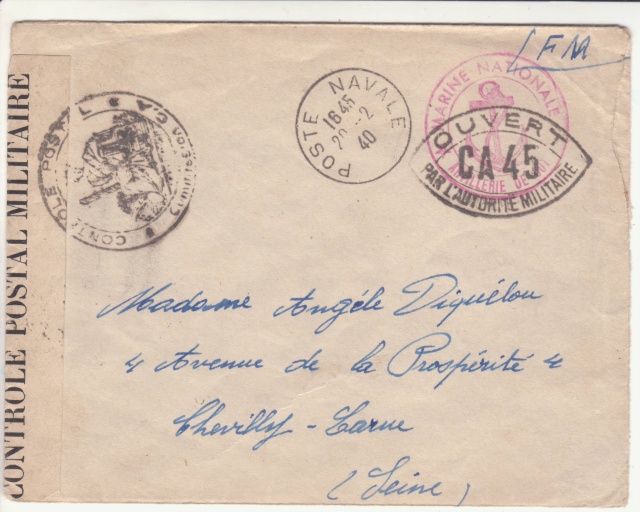 FM
POSTE NAVALE
1645
2
40
MARINE NATIONALE
ARTILLERIE DE
OUVERT
CA 45
PAR L'AUTORITÉ MILITAIRE
CONTROLE POSTAL
COMMISSION CA
CONTROLE POSTAL MILITAIRE
Madame Angéle Diquélou
4 Avenue de la Prospérité 4
Chevilly-Larue
(Seine)